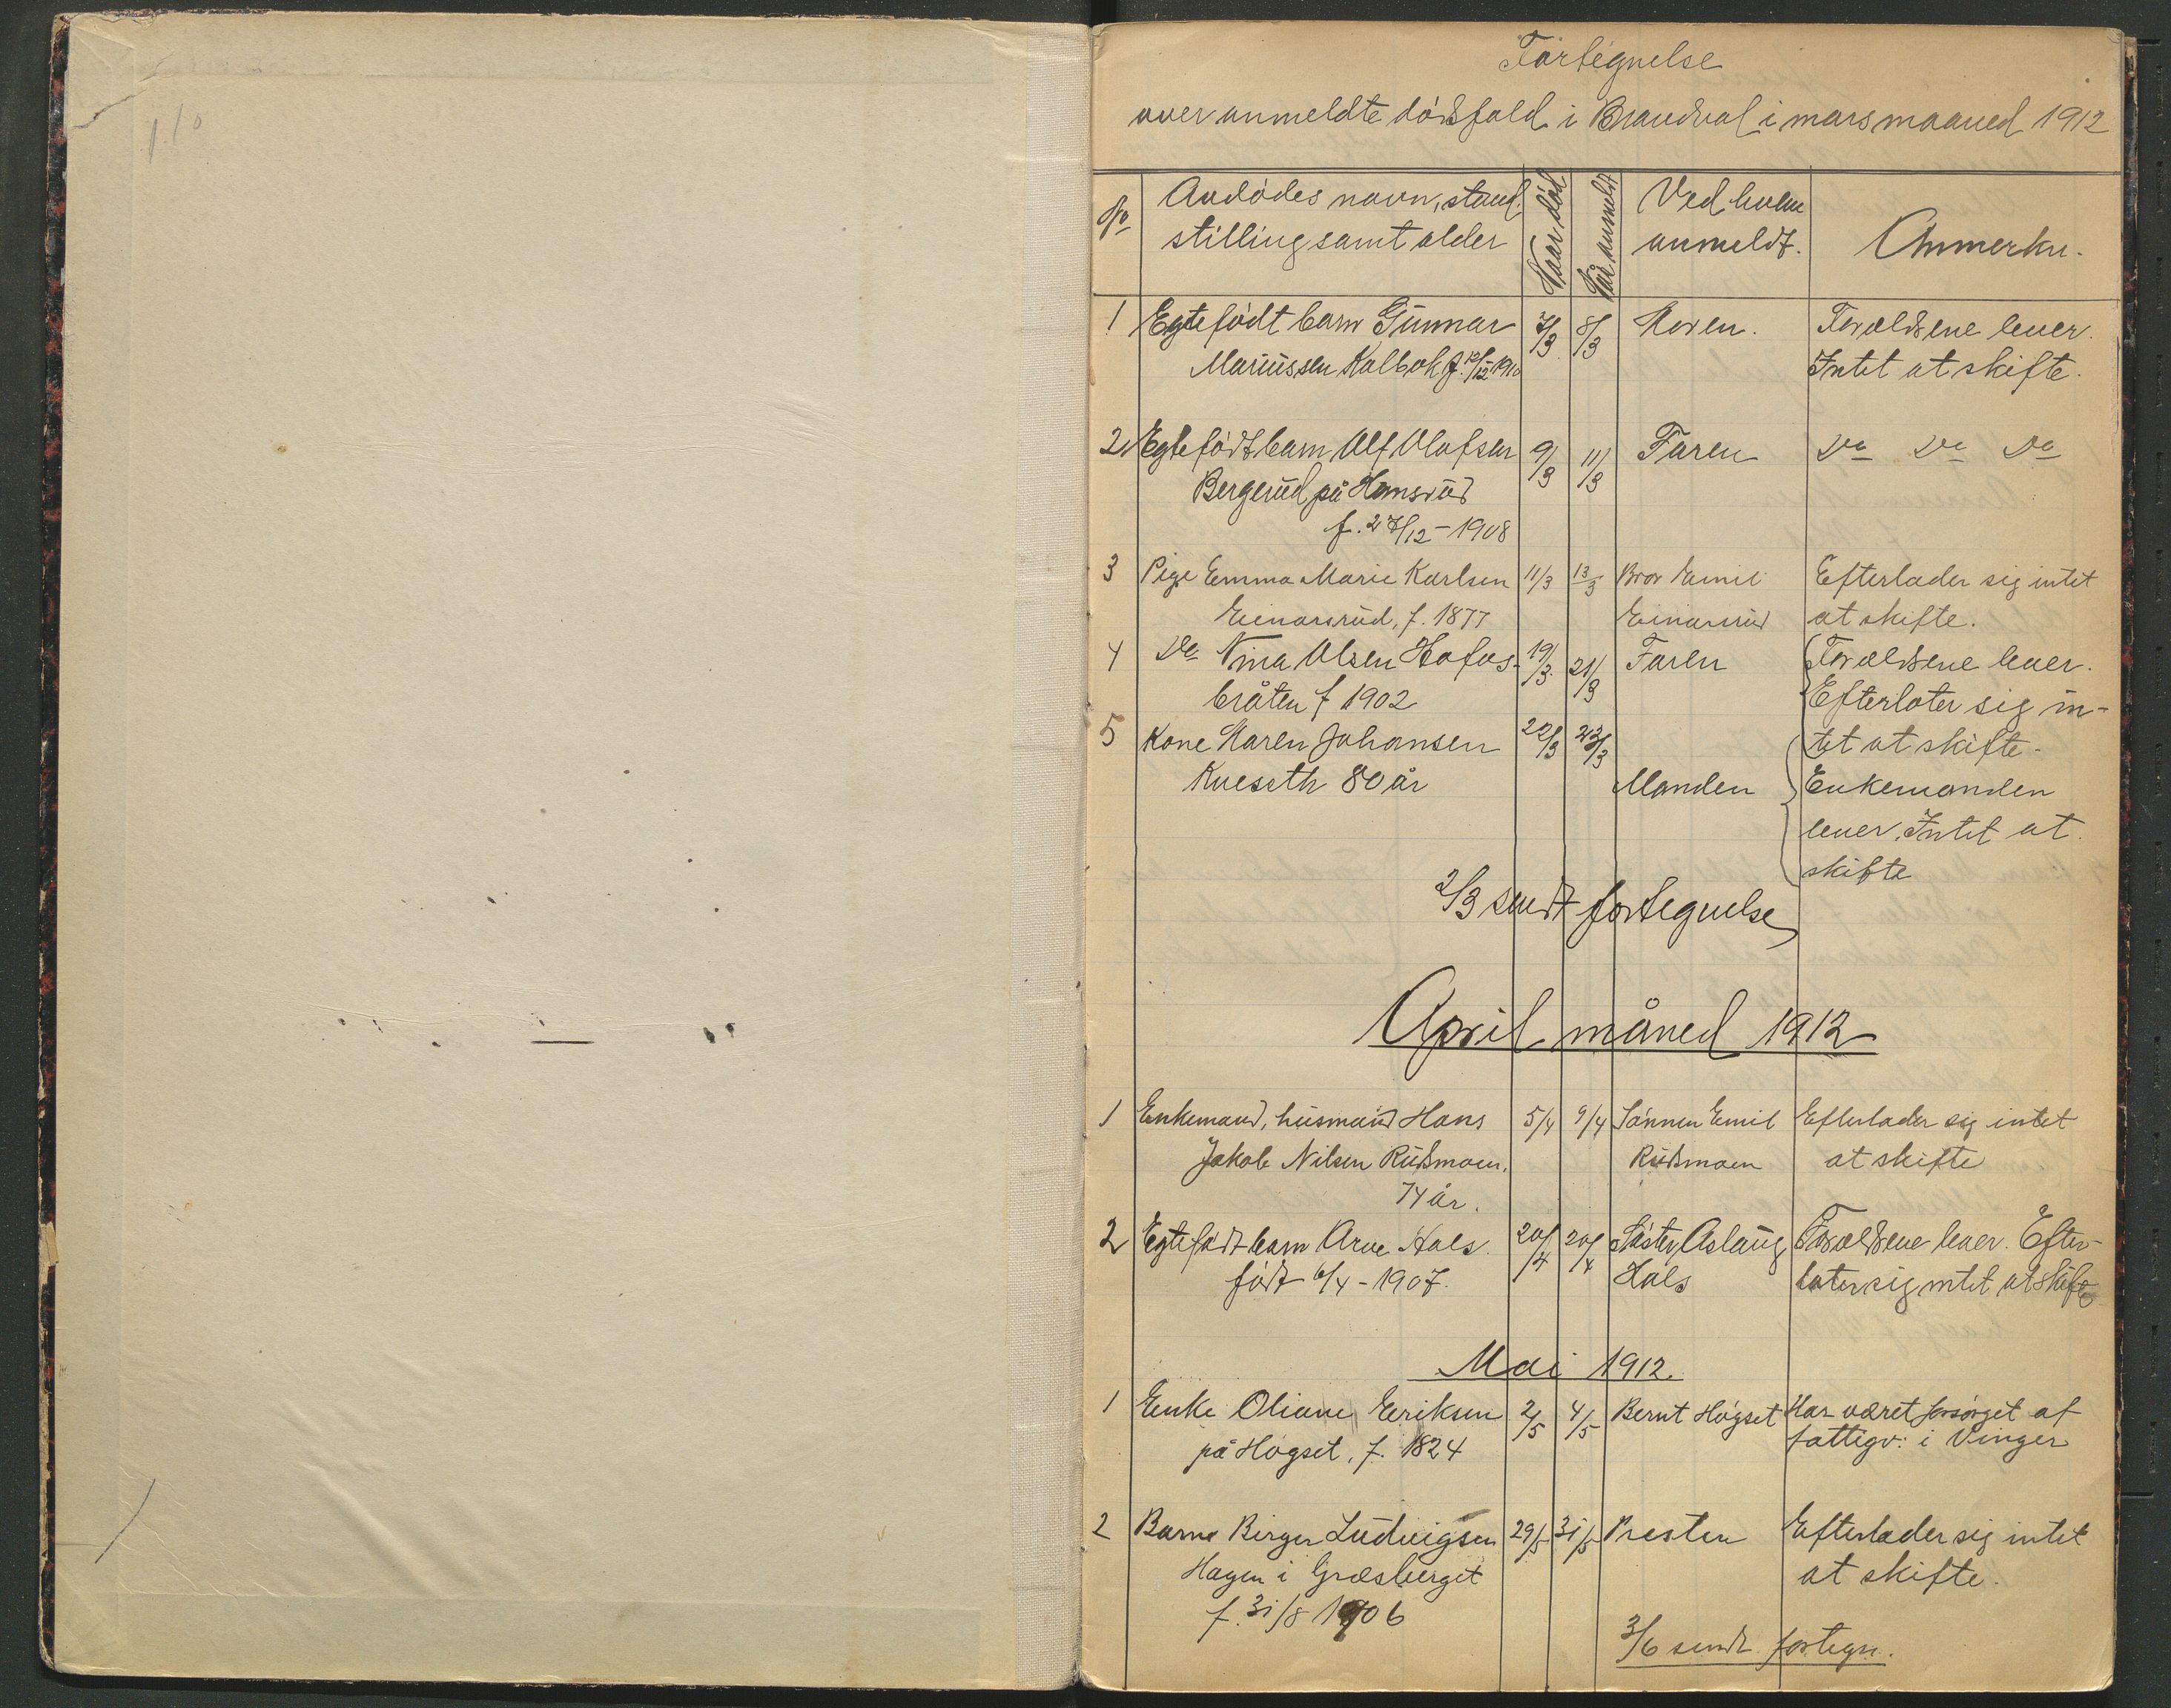 Fortegnelse
over anmeldte dödsfald i Brandval i mars maaned 1912
No
Avdödes navn, stand.
stilling samt alder
Naar död
Når anmeldt
Ved hvem
anmeldt.
Anmerkn.
1 Egtefödt barn Gunnar 7/3 8/3 Moren. Forældrene lever.
Mariussen Kalbak f. 12/12-1910 Intet at skifte.
2 Egtefödt barn Alf Olafsen 9/3 11/3 Faren Do Do Do
Bergerud på Hansrud
f. 27/12-1908
3 Pige Emma Marie Karlsen 11/3 13/3 Bror Emil Efterlader sig intet
Einarsrud, f. 1877 Einarsrud at skifte.
4 Do Nina Olsen Hofos- 19/3 21/3 Faren Forældrene lever.
bråten f 1902 Efterlater sig in-
5 Kone Maren Johansen 22/3 23/3 tet at skifte.
80 år Manden Enkemanden
lever. Intet at
skifte
2/3 sendt fortegnelse
April måned 1912
1 Enkemand, husmand Hans 5/4 9/4 Sönnen Emil Efterlader sig intet
Jakob Nilsen Rudsmoen. Rudsmoen at skifte
74 år.
2 Egtefödt barn Arve Hals. 20/4 20/4 Söster Aslaug Forældrene lever. Efter-
födt 6/4-1907. Hals later sig intet at skifte
Mai 1912.
1 Enke Oliane Eriksen 2/5 4/5 Bernt Högset Har været forsörget af
på Högset, f. 1824 fattigv: i Vinger
2 Barne Birger Ludvigsen 29/5 31/5 Presten Efterlader sig intet
Hagen i Græsberget at skifte.
f. 31/8 1906
3/6 sendt fortegn.